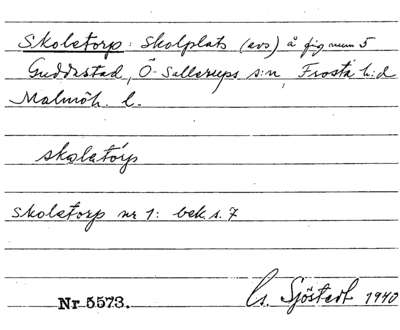 Skoletorp: Skolplats (avs) å fig num 5
Guddastad, Ö-Sallerups s:n, Frosta h:d
Malmöh. l.
skoletorp
Skoletorp nr 1: bek. s. 7
Nr 5573. G. Sjöstedt 1940